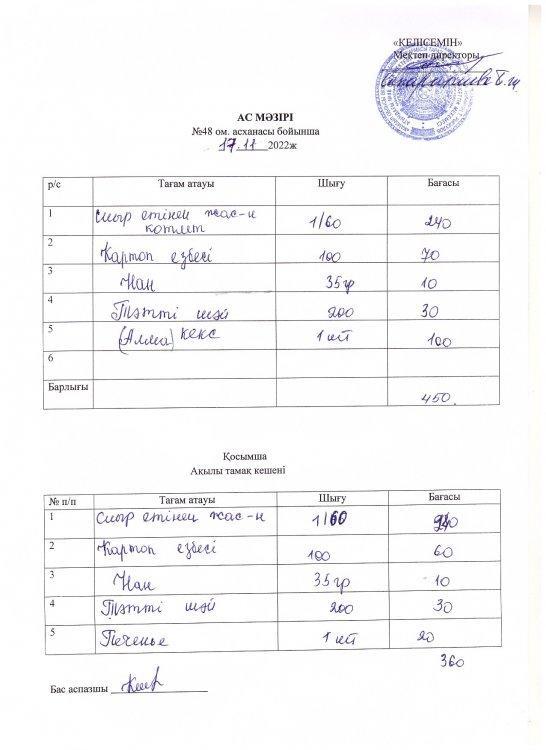 «КЕЛІСЕМІН»
Мектеп директоры
АС МӘЗІРІ
№48 ом. асханасы бойынша
17.11 2022ж
р/с Тағам атауы Шығу Бағасы
1 Сиыр етінен жас-н котлет 1/60 240
2 Картоп езбесі 100 70
3 Нан 35гр 10
4 Тәтті шәй 200 30
5 (Алма) кекс 1 шт 100
6
Барлығы 450.
Қосымша
Ақылы тамақ кешені
№ п/п Тағам атауы Шығу Бағасы
1 Сиыр етінен жас-н 1/60 240
2 Картоп езбесі 100 60
3 Нан 35гр 10
4 Тәтті шәй 200 30
5 Печенье 1 шт 20
360
Бас аспазшы